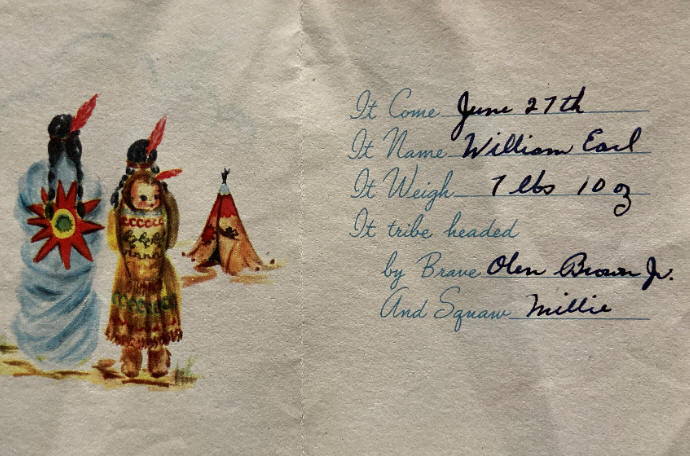 It Come June 27th
It Name William Earl
It Weigh 7 lbs 10 oz
It tribe headed
by Brave Olen Brown Jr.
And Squaw Millie